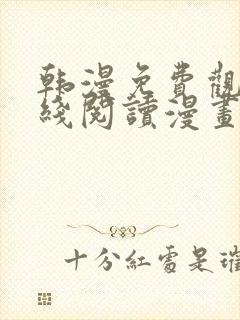 韩漫免費觀
綫閱讀漫畫
十分紅處是璀